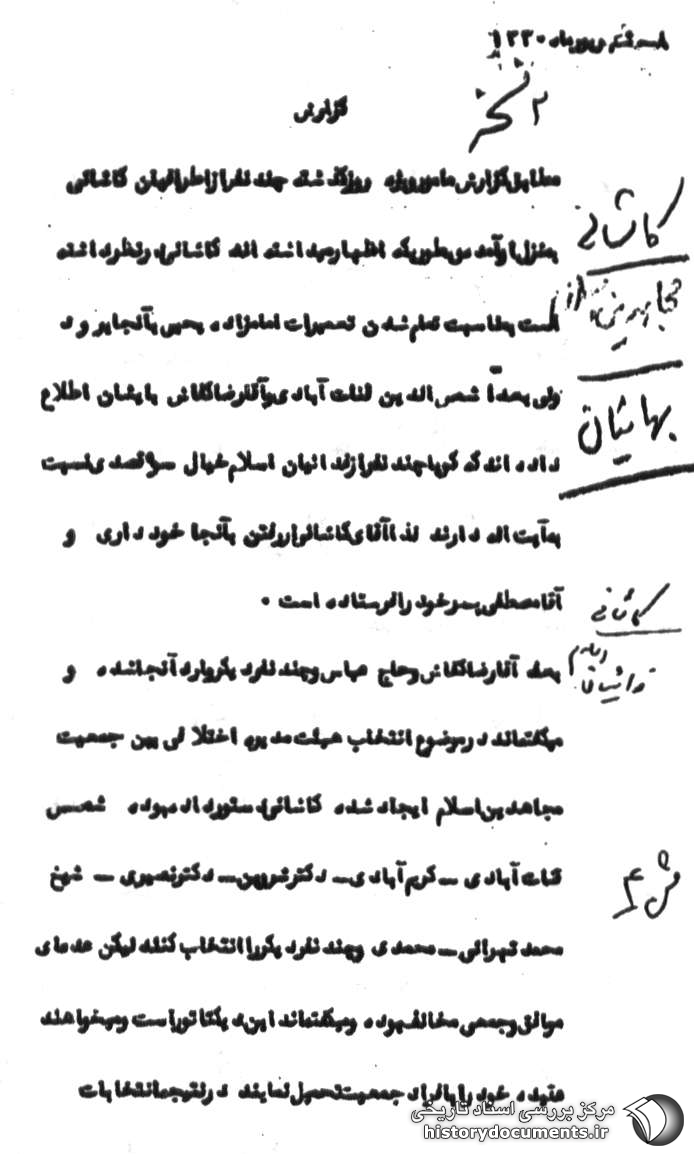 شهریورماه ۱۳۳۰
۲ نسخه
گزارش
مطابق گزارش مامور ویژه روز گذشته چند نفر از اطرافیان کاشانی
بمنزل او آمده بطوریکه اظهار میداشته اند کاشانی در نظر داشته
است بمناسبت تمام شدن تعمیرات امامزاده یحیی بآنجا برود
ولی بعداً شمس الدین قنات آبادی و آقا رضا کفاش بایشان اطلاع
داده اند که گویا چند نفر از فدائیان اسلام خیال سوء قصدی نسبت
به آیت اله دارند لذا آقای کاشانی از رفتن بآنجا خودداری و
آقا مصطفی پسر خود را فرستاده است ۰
بعد آقا رضا کفاش و حاج عباس و چند نفر دیگر وارد آنجا شده و
میگفتند در موضوع انتخاب هیئت مدیره اختلافی بین جمعیت
مجاهدین اسلام ایجاد شده کاشانی دستور داده بوده شمس
قنات آبادی ـ کریم آبادی ـ دکتر شروین ـ دکتر نصیری ـ شیخ
محمد تهرانی ـ محمدی و چند نفر دیگر را انتخاب کنند لیکن عده ای
موافق و جمعی مخالف بوده و میگفتند این دیکتاتوری است و میخواهند
عقیده خود را بافراد جمعیت تحمیل نمایند در نتیجه انتخابات
کاشانی
مجاهدین اسلام
بهائیان
کاشانی
فدائیان اسلام
مرکز بررسی اسناد تاریخی
historydocuments.ir